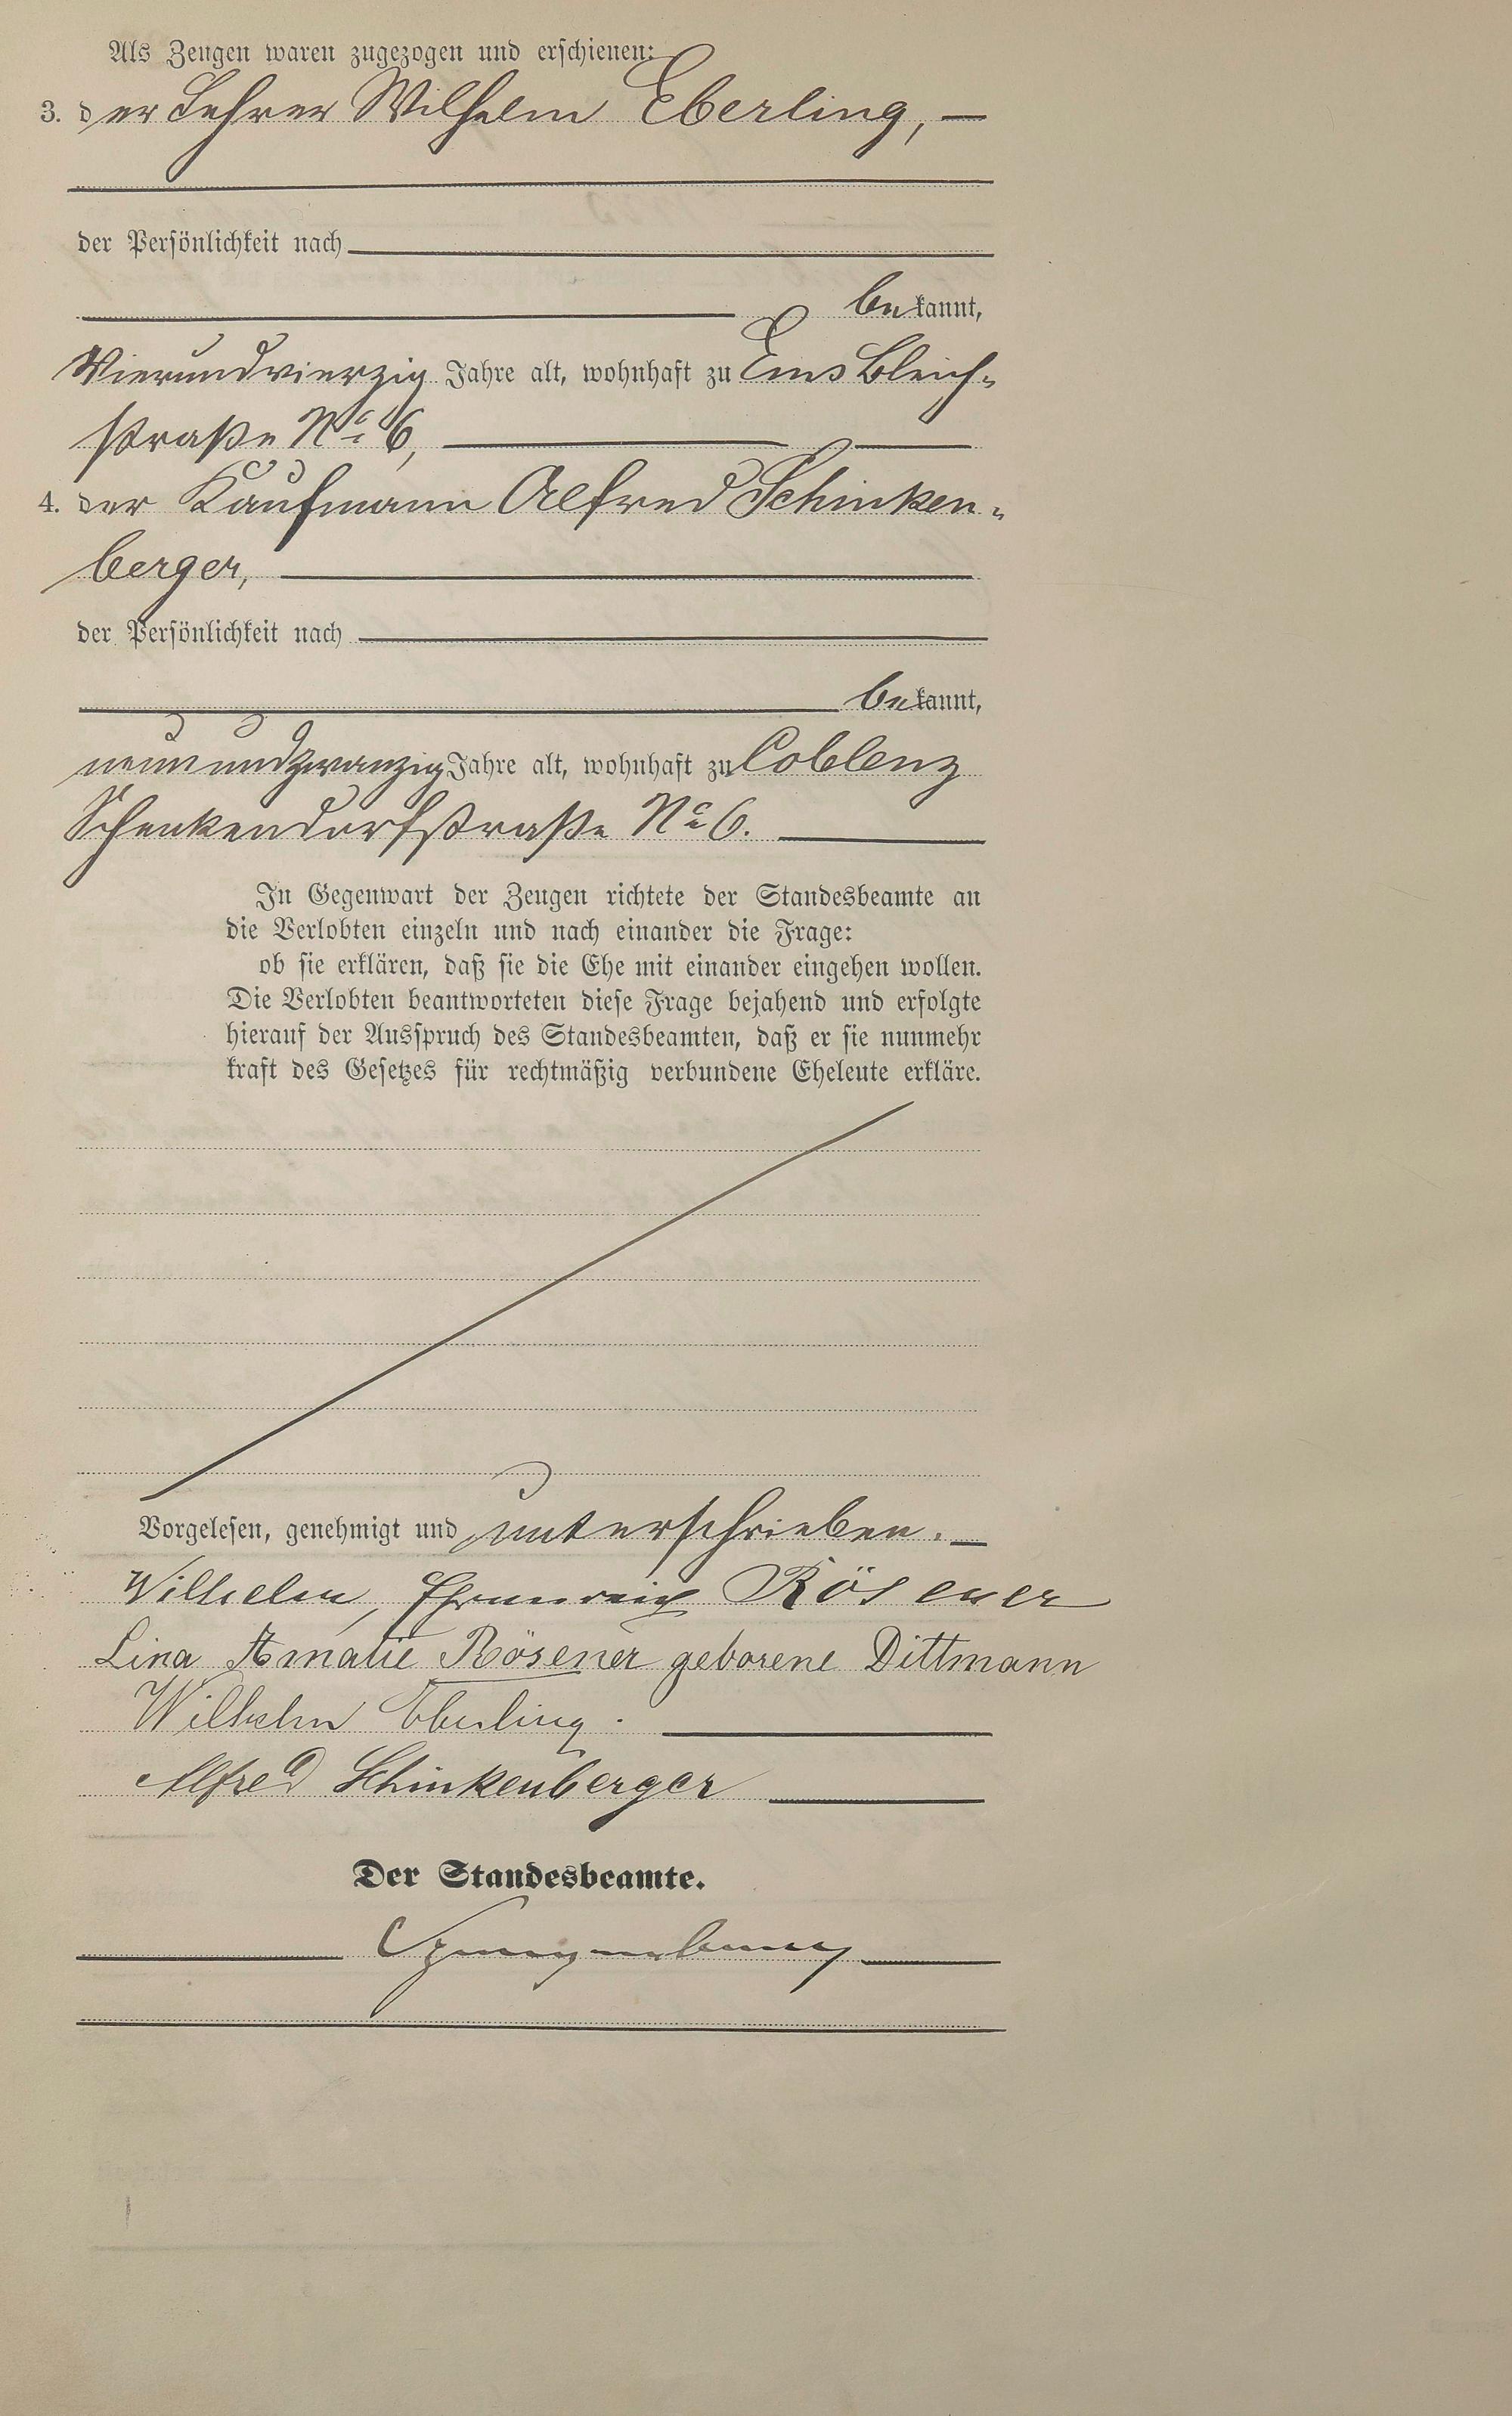 Als Zeugen waren zugezogen und erschienen:
3. der Lehrer Wilhelm Eberling, —
der Persönlichkeit nach
bekannt,
Vierundvierzig Jahre alt, wohnhaft zu Ems Bleich=
straße No 6,
4. der Kaufmann Alfred Schinken=
berger,
der Persönlichkeit nach
bekannt,
neunundzwanzig Jahre alt, wohnhaft zu Coblenz
Schenkendorfstraße No 6.
In Gegenwart der Zeugen richtete der Standesbeamte an
die Verlobten einzeln und nach einander die Frage:
ob sie erklären, daß sie die Ehe mit einander eingehen wollen.
Die Verlobten beantworteten diese Frage bejahend und erfolgte
hierauf der Ausspruch des Standesbeamten, daß er sie nunmehr
kraft des Gesetzes für rechtmäßig verbundene Eheleute erkläre.
Vorgelesen, genehmigt und unterschrieben. —
Wilhelm, Ehrenreich Rösener
Lina Amalie Rösener geborene Dittmann
Wilhelm Eberling.
Alfred Schinkenberger
Der Standesbeamte.